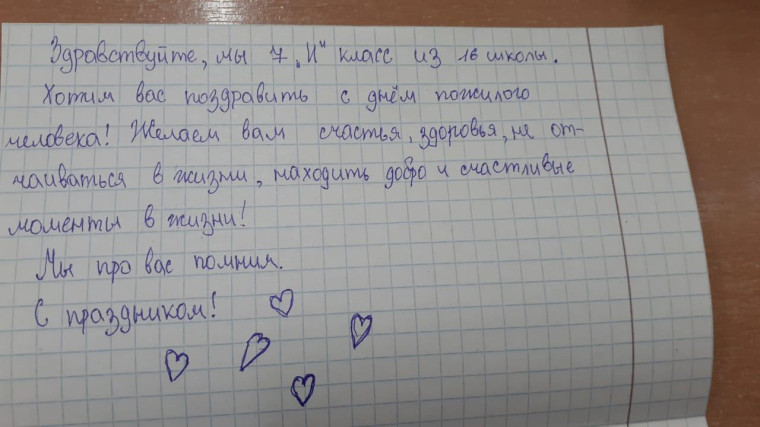 Здравствуйте, мы 7 „И" класс из 16 школы.
Хотим вас поздравить с днём пожилого
человека! Желаем вам счастья, здоровья, не от-
чаиваться в жизни, находить добро и счастливые
моменты в жизни!
Мы про вас помним.
С праздником!